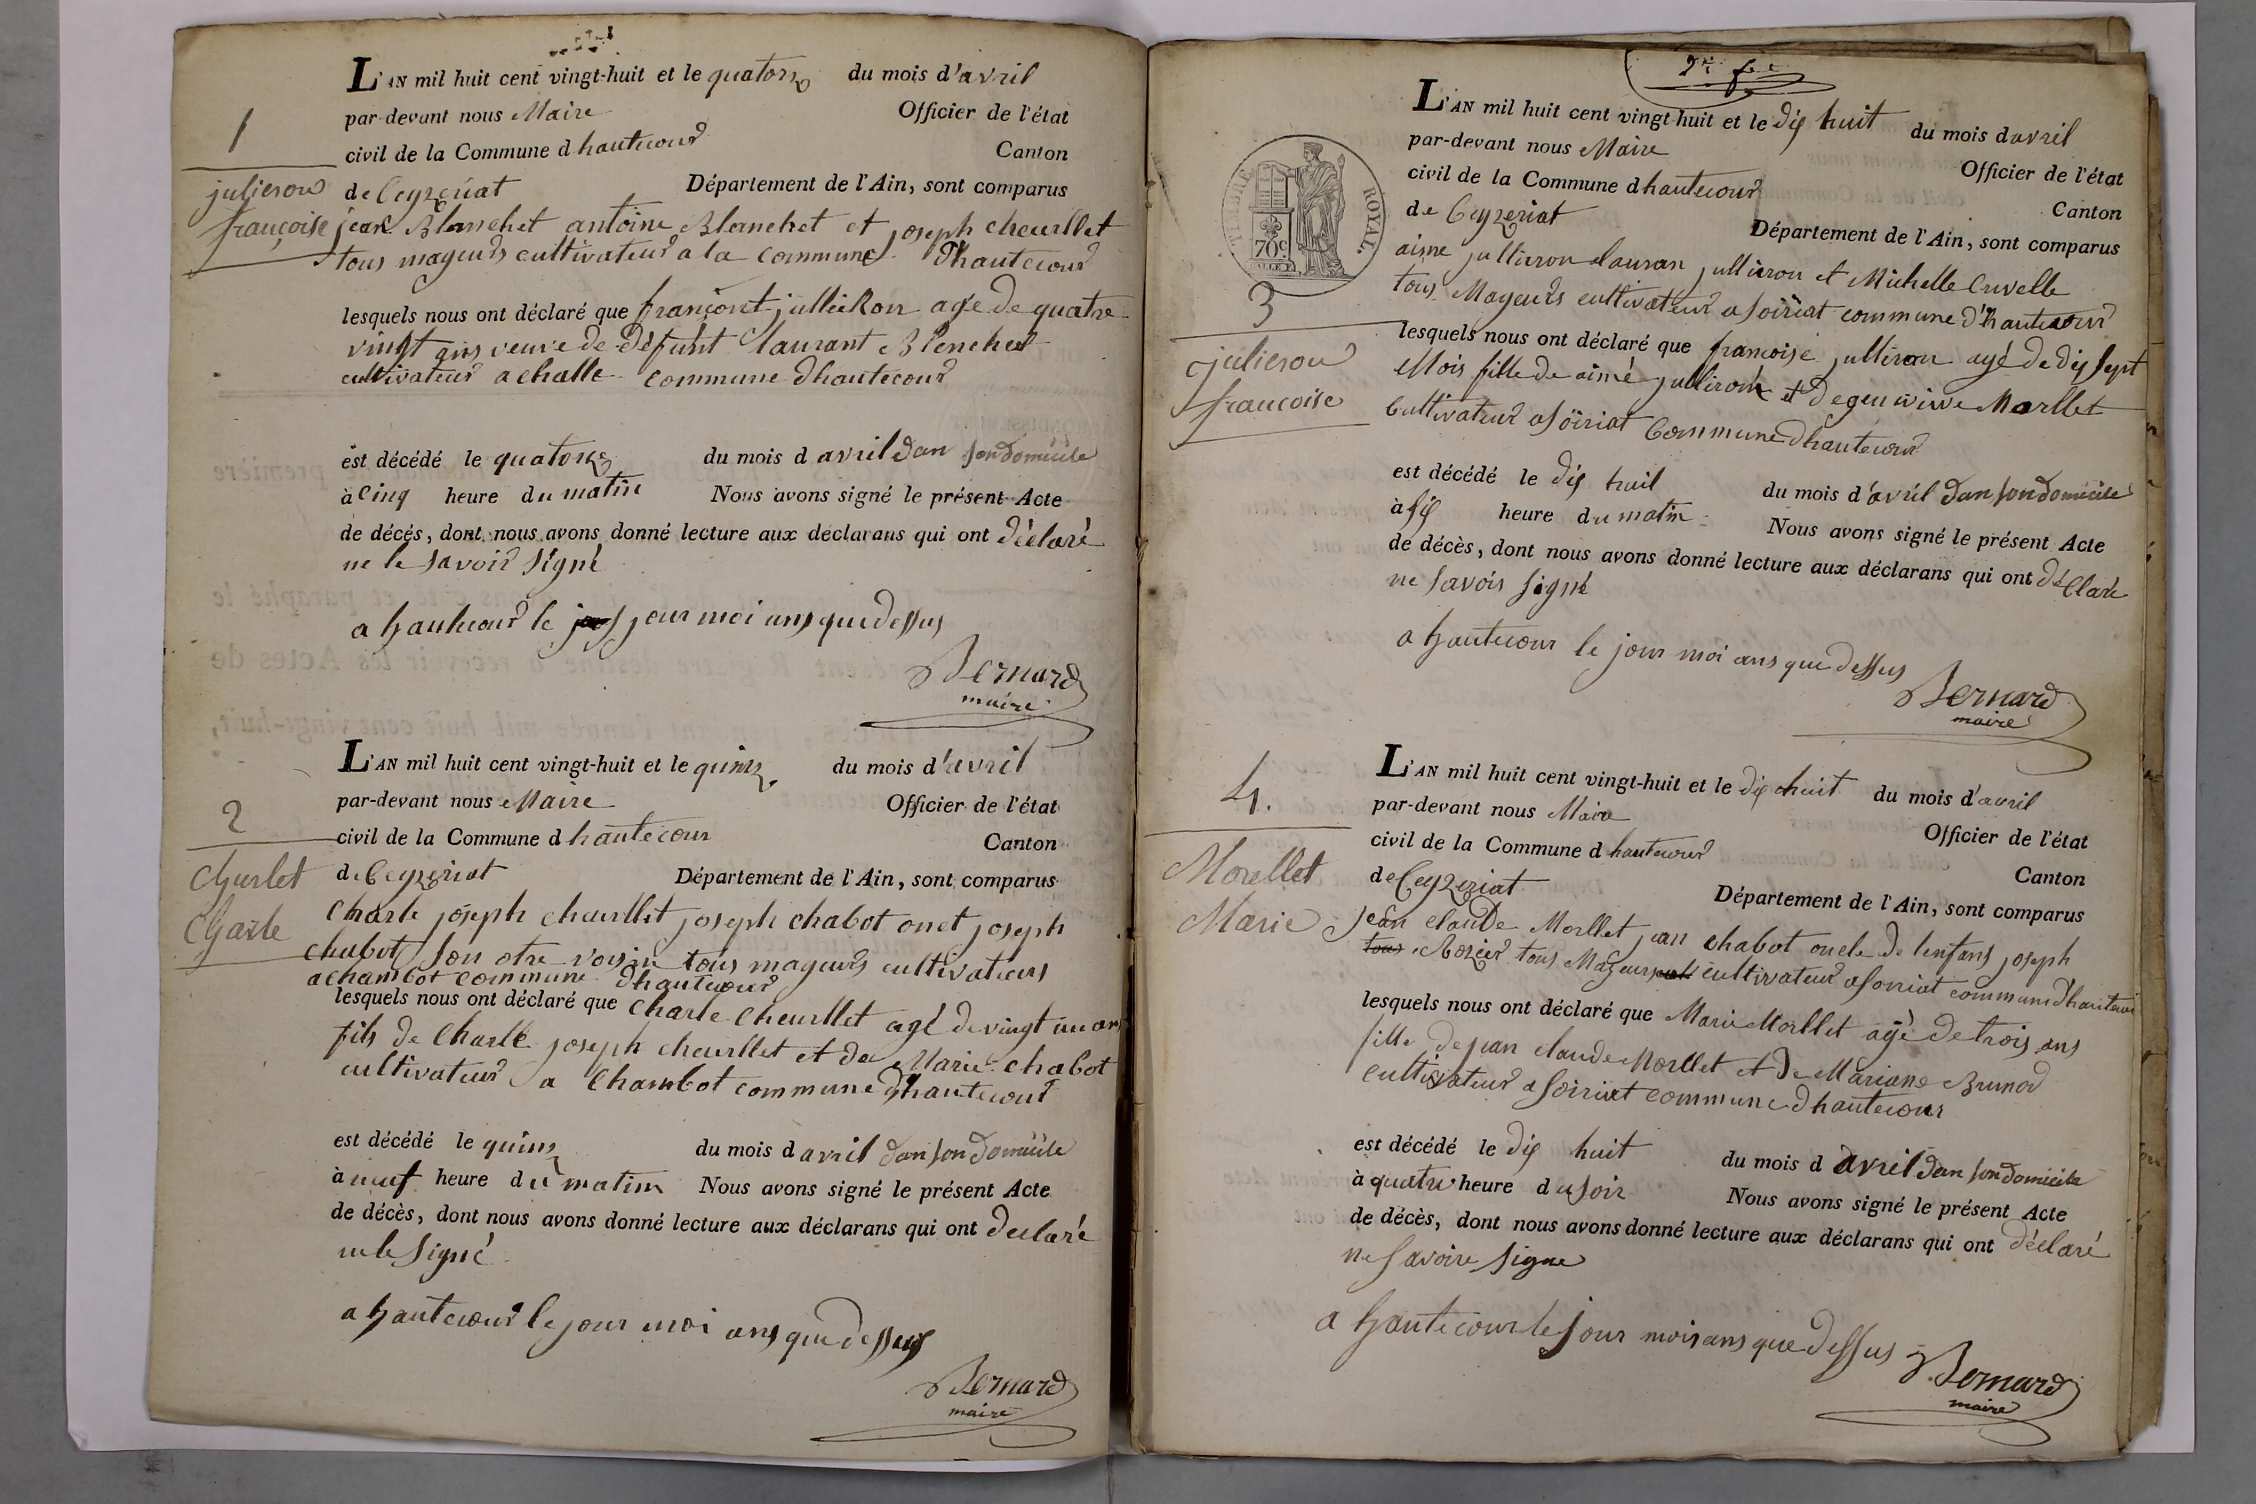 L'AN mil huit cent vingt-huit et le quatorze du mois d'avril
par-devant nous Maire Officier de l'état
1
civil de la Commune d hautecour Canton
julieron
de Ceyzeriat Département de l'Ain, sont comparus
françoise
jean Blanchet antoine Blanchet et joseph cheurllet
tous mageurs cultivateur a la commune d'hautecour
lesquels nous ont déclaré que françoist jullieron age de quatre
vingt ans veuve de défunt laurant Blenchet
cultivateur a challe commune d hautecour
est décédé le quatorze du mois d avril dan son domicile
à cinq heure du matin Nous avons signé le présent Acte
de décés, dont nous avons donné lecture aux déclarans qui ont déclaré
ne le savoir signé
a hautecour le jour moi ans que dessus
Bernard
maire
L'AN mil huit cent vingt-huit et le quinze du mois d'avril
par-devant nous Maire Officier de l'état
2
civil de la Commune d hautecour Canton
Churlet
de Ceyzeriat Département de l'Ain, sont comparus
Charle
Charle joseph cheurllet joseph chabot on et joseph
chabot son otre voisin tous mageurs cultivateurs
a chambot commune d'hautecour
lesquels nous ont déclaré que Charle Cheurllet agé de vingt un ans
fils de Charle joseph cheurllet et de Marie chabot
cultivateur a Chambot commune d'hautecour
est décédé le quinze du mois d avril dan son domicile
à neuf heure du matin Nous avons signé le présent Acte
de décès, dont nous avons donné lecture aux déclarans qui ont declaré
ne le signé
a hautecour le jour moi ans que dessus
Bernard
maire
2me fe
L'AN mil huit cent vingt-huit et le dix huit du mois d avril
par-devant nous Maire Officier de l'état
civil de la Commune d hautecour Canton
de Ceyzeriat Département de l'Ain, sont comparus
TIMBRE ROYAL.
70c
3
aime jullieron lauran jullieron et Michelle Cuvelle
tous Mageurs cultivateur a soiriat commune d'hautecour
julieron
françoise
lesquels nous ont déclaré que francoise julliron agé de dix sept
Mois fille de aimé jullirom et de genwivve Morllet
Cultivateur a soiriat Commune d hautecour
est décédé le dix huil du mois d'avril dan son domicile
à six heure du matin Nous avons signé le présent Acte
de décès, dont nous avons donné lecture aux déclarans qui ont déClaré
ne savoir signé
a hautecour le jour moi ans que dessus
Bernard
maire
L'AN mil huit cent vingt-huit et le dix huit du mois d'avril
par-devant nous Maire Officier de l'état
4.
civil de la Commune d hautecour Canton
Morellet
de Ceyzeriat Département de l'Ain, sont comparus
Marie
jean claude Morllet jean chabot oncle de lenfans joseph
tous Rozier tous Mageurs cultivateur a soriat commune d'hautecour
lesquels nous ont déclaré que Marie Morllet agé de trois ans
fille de jean claude Morllet et de Mariane Brunod
Cultivateur a soiriat commune d hautecour
est décédé le dix huit du mois d avril dan son domicile
à quatre heure du soir Nous avons signé le présent Acte
de décès, dont nous avons donné lecture aux déclarans qui ont déclaré
ne savoire signe
a hautecour le jour mois ans que dessus
Bernard
maire